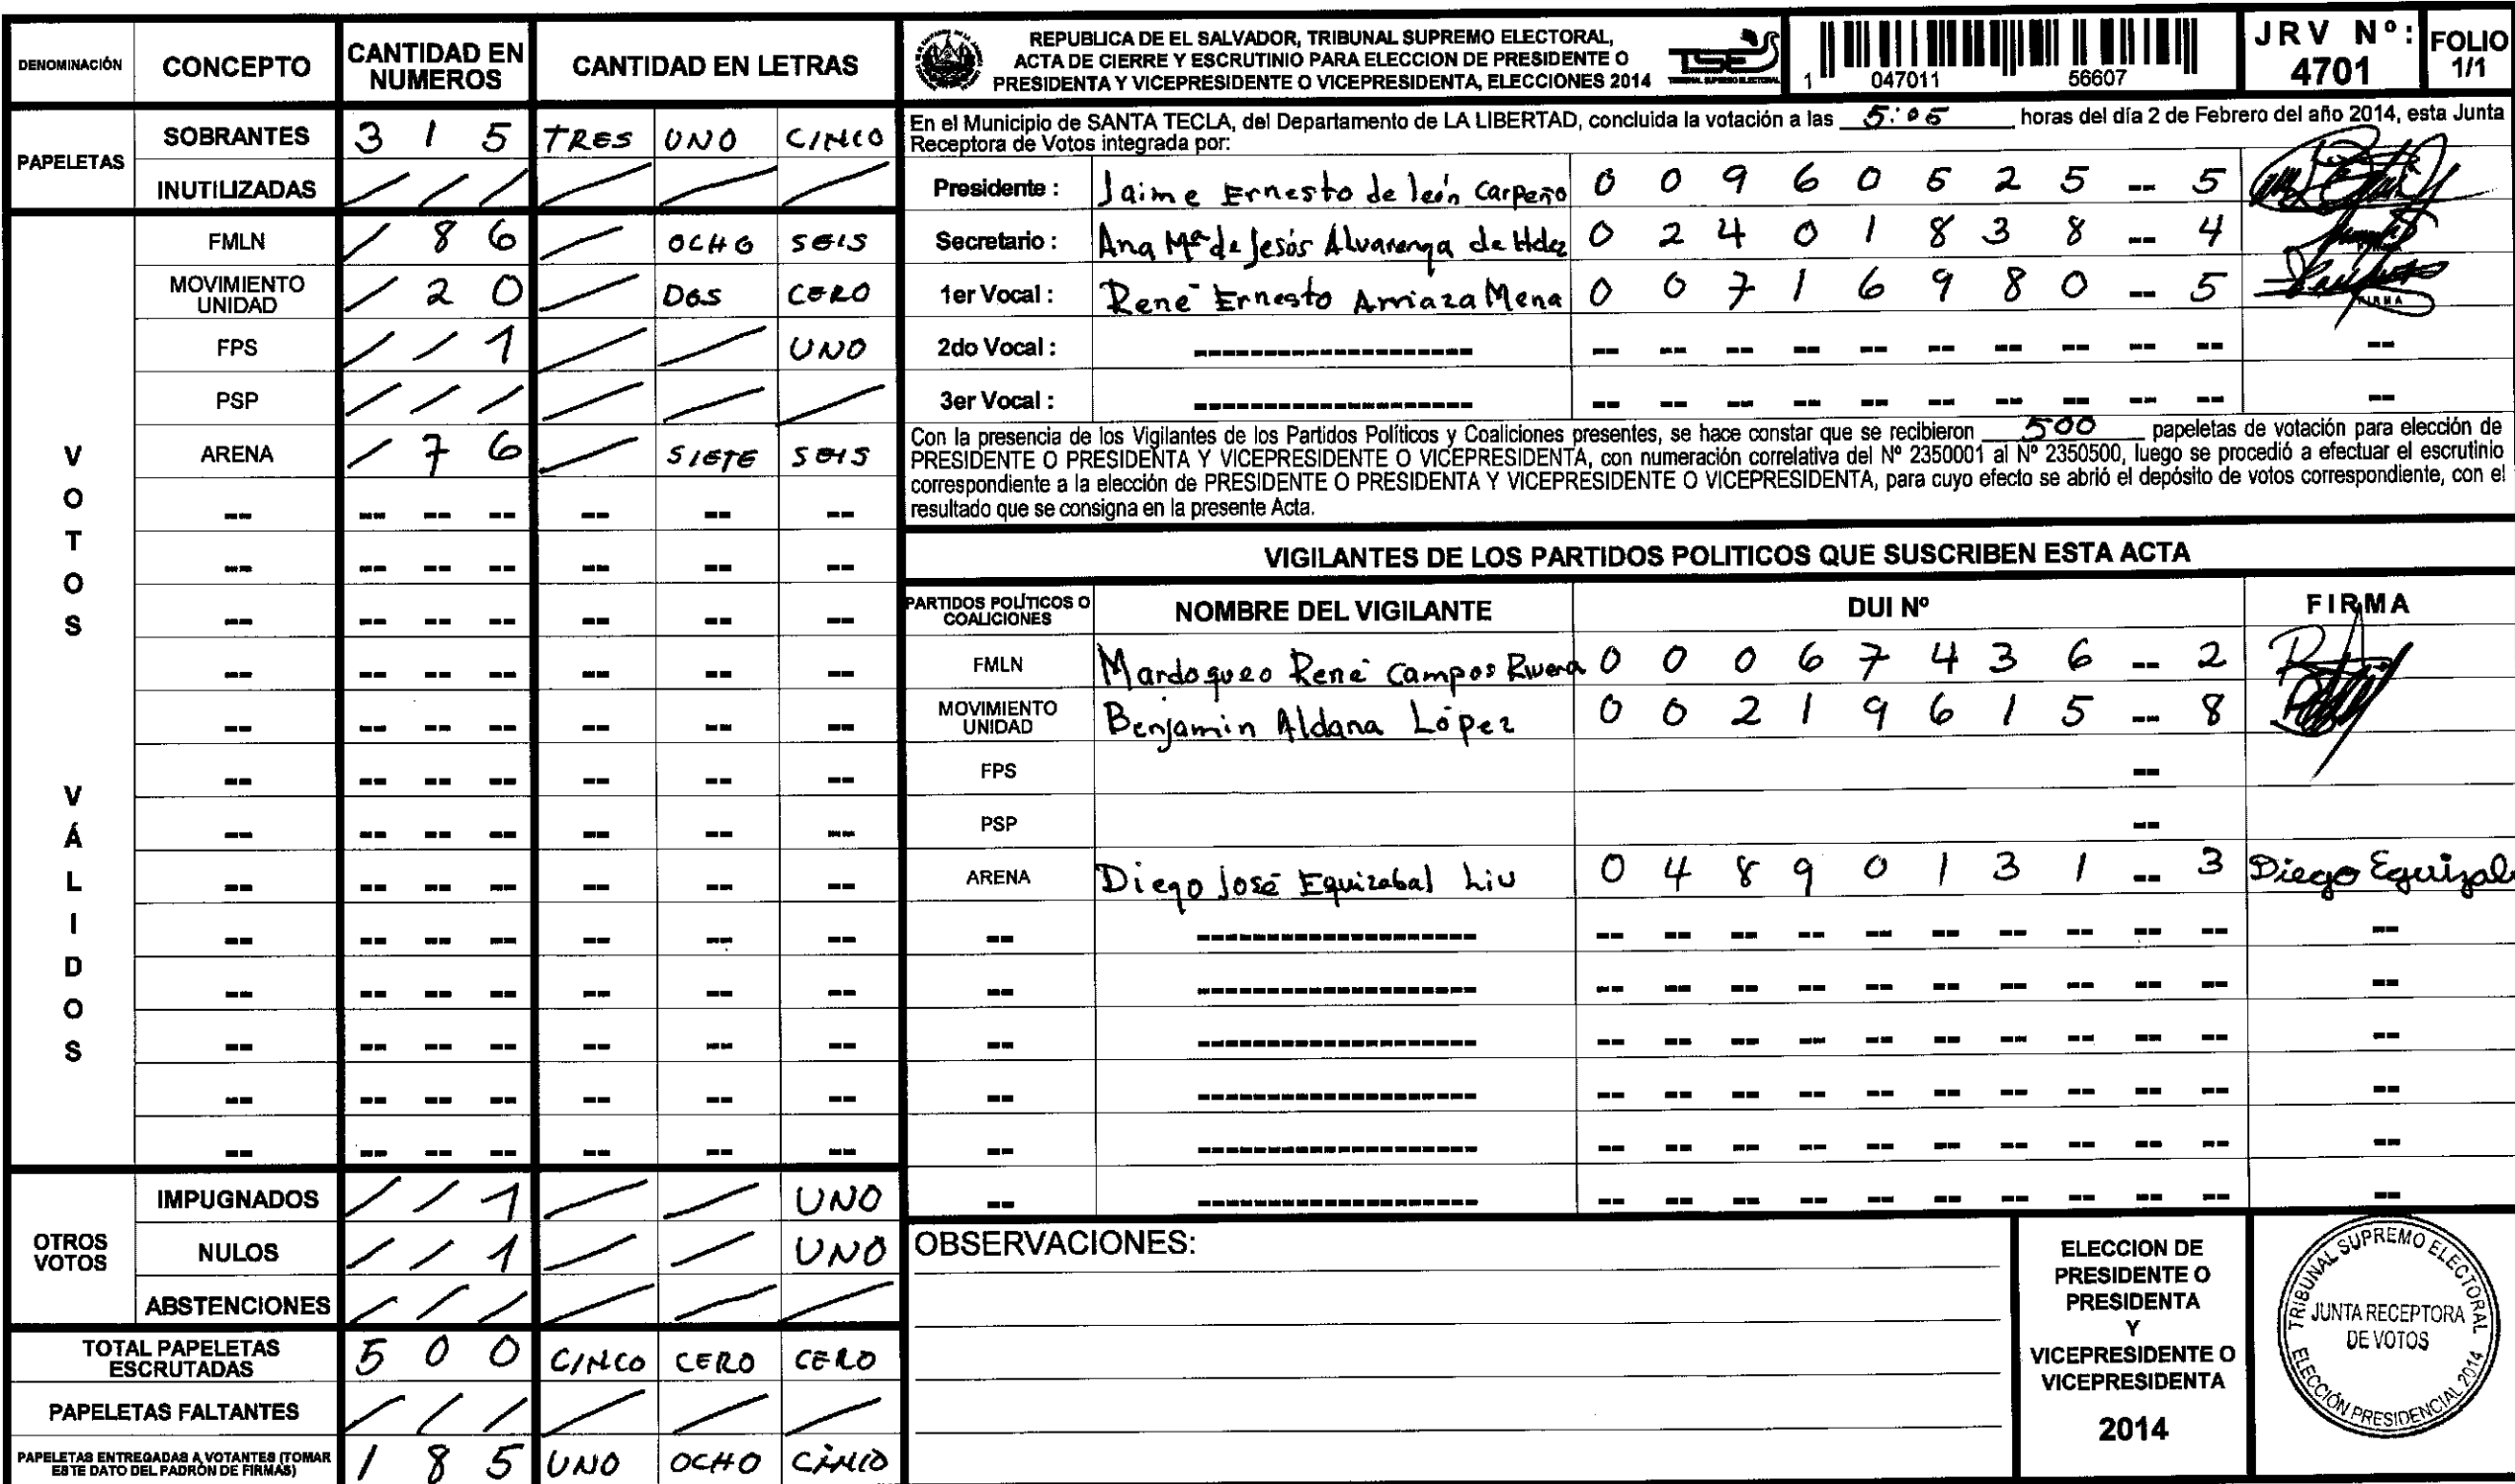 DENOMINACIÓN CONCEPTO CANTIDAD EN NUMEROS CANTIDAD EN LETRAS
PAPELETAS
SOBRANTES 3 1 5 TRES UNO CINCO
INUTILIZADAS / / / / / /
VOTOS VÁLIDOS
FMLN / 8 6 / OCHO SEIS
MOVIMIENTO UNIDAD / 2 0 / DOS CERO
FPS / / 1 / / UNO
PSP / / / / / /
ARENA / 7 6 / SIETE SEIS
-- -- -- -- -- -- --
-- -- -- -- -- -- --
-- -- -- -- -- -- --
-- -- -- -- -- -- --
-- -- -- -- -- -- --
-- -- -- -- -- -- --
-- -- -- -- -- -- --
-- -- -- -- -- -- --
-- -- -- -- -- -- --
-- -- -- -- -- -- --
-- -- -- -- -- -- --
-- -- -- -- -- -- --
-- -- -- -- -- -- --
OTROS VOTOS
IMPUGNADOS / / 1 / / UNO
NULOS / / 1 / / UNO
ABSTENCIONES / / / / / /
TOTAL PAPELETAS ESCRUTADAS 5 0 0 CINCO CERO CERO
PAPELETAS FALTANTES / / / / / /
PAPELETAS ENTREGADAS A VOTANTES (TOMAR ESTE DATO DEL PADRÓN DE FIRMAS) 1 8 5 UNO OCHO CINCO
REPUBLICA DE EL SALVADOR, TRIBUNAL SUPREMO ELECTORAL,
ACTA DE CIERRE Y ESCRUTINIO PARA ELECCION DE PRESIDENTE O
PRESIDENTA Y VICEPRESIDENTE O VICEPRESIDENTA, ELECCIONES 2014
TSE
TRIBUNAL SUPREMO ELECTORAL
1 047011 56607
JRV Nº: 4701
FOLIO 1/1
En el Municipio de SANTA TECLA, del Departamento de LA LIBERTAD, concluida la votación a las 5:05 horas del día 2 de Febrero del año 2014, esta Junta
Receptora de Votos integrada por:
Presidente : Jaime Ernesto de león Carpeño 0 0 9 6 0 5 2 5 -- 5
Secretario : Ana Mª de Jesús Alvarenga de Hdez 0 2 4 0 1 8 3 8 -- 4
1er Vocal : René Ernesto Arriaza Mena 0 0 7 1 6 9 8 0 -- 5
FIRMA
2do Vocal : -------------------- -- -- -- -- -- -- -- -- -- -- --
3er Vocal : -------------------- -- -- -- -- -- -- -- -- -- -- --
Con la presencia de los Vigilantes de los Partidos Políticos y Coaliciones presentes, se hace constar que se recibieron 500 papeletas de votación para elección de
PRESIDENTE O PRESIDENTA Y VICEPRESIDENTE O VICEPRESIDENTA, con numeración correlativa del Nº 2350001 al Nº 2350500, luego se procedió a efectuar el escrutinio
correspondiente a la elección de PRESIDENTE O PRESIDENTA Y VICEPRESIDENTE O VICEPRESIDENTA, para cuyo efecto se abrió el depósito de votos correspondiente, con el
resultado que se consigna en la presente Acta.
VIGILANTES DE LOS PARTIDOS POLITICOS QUE SUSCRIBEN ESTA ACTA
PARTIDOS POLÍTICOS O COALICIONES NOMBRE DEL VIGILANTE DUI Nº FIRMA
FMLN Mardoqueo René Campos Rivera 0 0 0 6 7 4 3 6 -- 2
MOVIMIENTO UNIDAD Benjamin Aldana López 0 0 2 1 9 6 1 5 -- 8
FPS --
PSP --
ARENA Diego José Eguizabal Liu 0 4 8 9 0 1 3 1 -- 3 Diego Eguizab
-- -------------------- -- -- -- -- -- -- -- -- -- -- --
-- -------------------- -- -- -- -- -- -- -- -- -- -- --
-- -------------------- -- -- -- -- -- -- -- -- -- -- --
-- -------------------- -- -- -- -- -- -- -- -- -- -- --
-- -------------------- -- -- -- -- -- -- -- -- -- -- --
-- -------------------- -- -- -- -- -- -- -- -- -- -- --
OBSERVACIONES:
ELECCION DE
PRESIDENTE O
PRESIDENTA
Y
VICEPRESIDENTE O
VICEPRESIDENTA
2014
TRIBUNAL SUPREMO ELECTORAL
JUNTA RECEPTORA
DE VOTOS
ELECCIÓN PRESIDENCIAL 2014